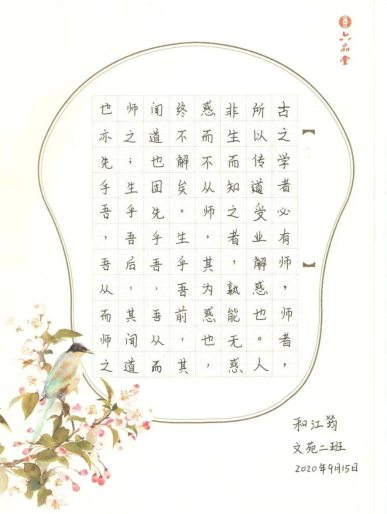 六品堂
古之学者必有师,师者,
所以传道受业解惑也。人
非生而知之者,孰能无惑
惑而不从师,其为惑也,
终不解矣。生乎吾前,其
闻道也固先乎吾,吾从而
师之;生乎吾后,其闻道
也亦先乎吾,吾从而师之
和江筠
文苑二班
2020年9月15日